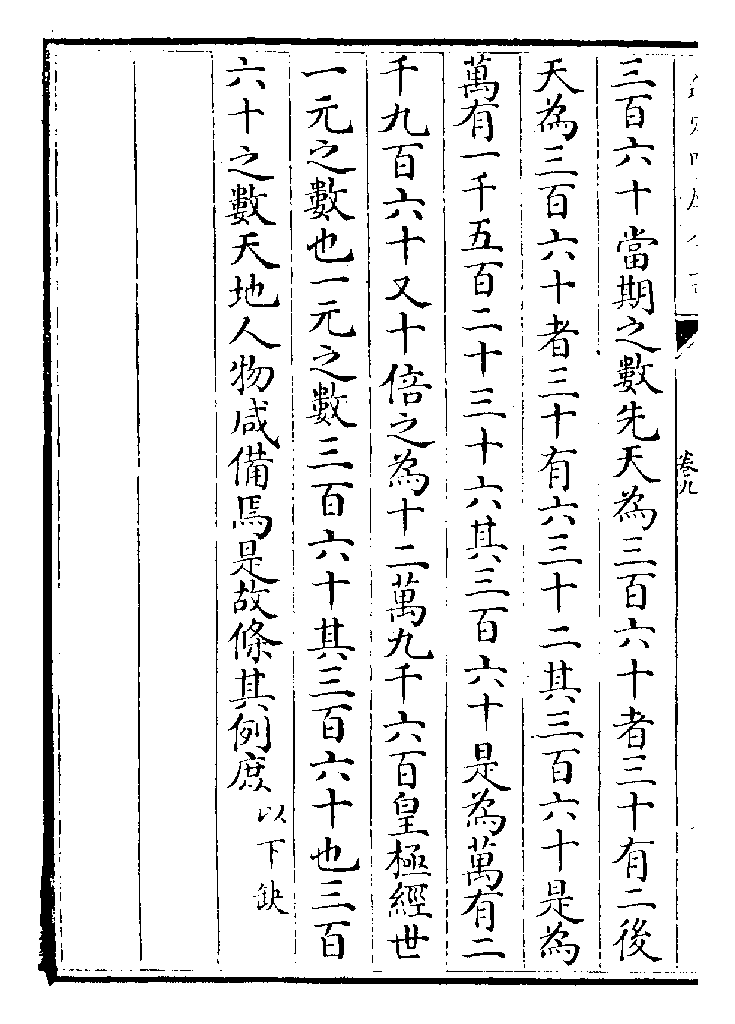 三百六十當期之數先天為三百六十者三十有二後
天為三百六十者三十有六三十二其三百六十是為
萬有一千五百二十三十六其三百六十是為萬有二
千九百六十又十倍之為十二萬九千六百皇極經世
一元之數也一元之數三百六十其三百六十也三百
六十之數天地人物咸備焉是故條其例庶以下缺